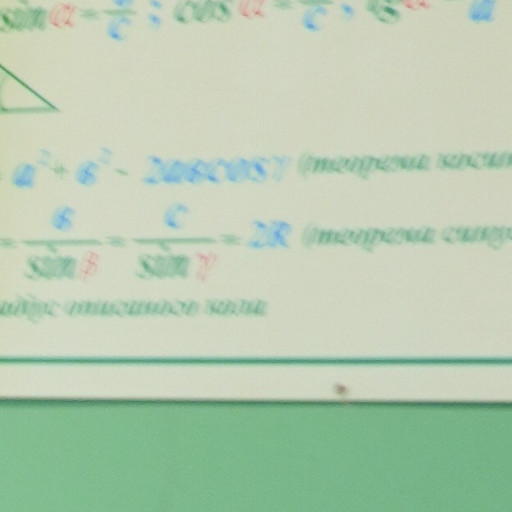 sin α = — ; cos α = — ; tg α = —
a² + b² - 2abcosγ (теорема косин
= b / sin β = c / sin γ = 2R (теорема синус
адіус описаного кола